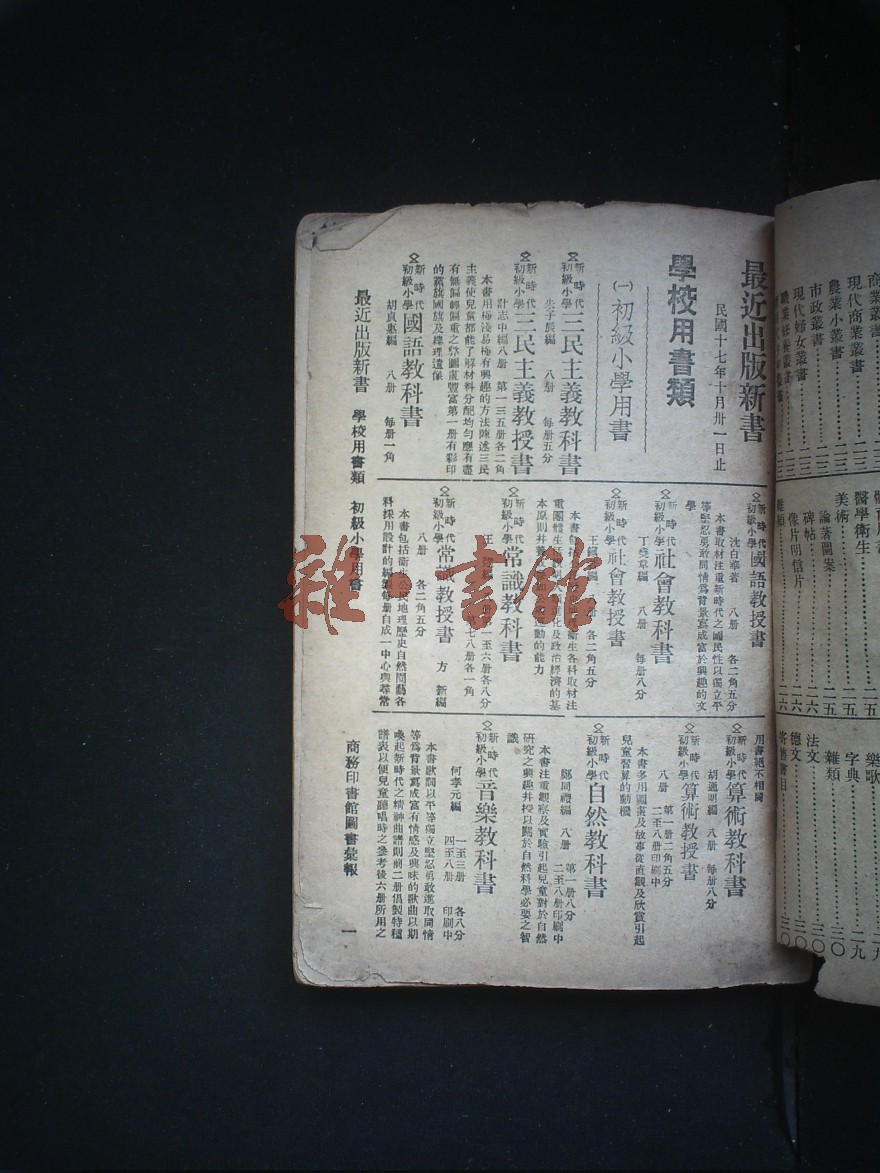 最近出版新書
民國十七年十月卅一日止
學校用書類
(一)初級小學用書
新時代初級小學三民主義教科書
朱子辰編 八册 每册五分
新時代初級小學三民主義教授書
計志中編 八册 第一三五册各二角
本書用極淺易極有興趣的方法陳述三民
主義使兒童都能了解材料分配均勻應有盡
有無偏輕偏重之弊圖畫豐富第一册有彩印
的黨旗國旗及總理遺像
新時代初級小學國語教科書
胡貞惠編 八册 每册一角
新時代初級小學國語教授書
沈百英著 八册 各二角五分
本書取材注重新時代之國民性以獨立平
等堅忍勇敢同情爲背景寫成富於興趣的文
學
新時代初級小學社會教科書
丁曉先編 八册 每册八分
新時代初級小學社會教授書
八册 各二角五分
衛生各科取材注
化及政治經濟的基
本原則并養
運動的能力
新時代初級小學常識教科書
一至六册各八分
第七八册各一角
新時代初級小學常識教授書
方新編
八册 各二角五分
本書包括衛生公民地理歷史自然園藝各
科採用設計的編製每册自成一中心與尋常
用書絕不相同
新時代初級小學算術教科書
胡通明編 八册 每册八分
新時代初級小學算術教授書
八册 第一册二角五分
二至八册印刷中
本書多用圖畫及故事從直觀及欣賞引起
兒童習算的動機
新時代初級小學自然教科書
鄭同禮編 八册 第一册八分
二至八册印刷中
本書注重觀察及實驗引起兒童對於自然
研究之興趣并授以關於自然科學必要之智
識
新時代初級小學音樂教科書
何孝元編 一至三册 各八分
四至八册 印刷中
本書歌詞以平等獨立堅忍勇敢進取同情
等爲背景寫成富有情感及興味的歌曲以期
喚起新時代之精神曲譜則前二册倡製特種
譜表以便兒童聽唱時之參考後六册所用之
最近出版新書 學校用書類 初級小學用書
商務印書館圖書彙報 一
商業叢書
現代商業叢書
農業小叢書
市政叢書
現代婦女叢書
醫學衛生
美術
論著圖案
碑帖
像片明信片
雜類
樂歌
字典
雜類
法文
德文
雜·書館